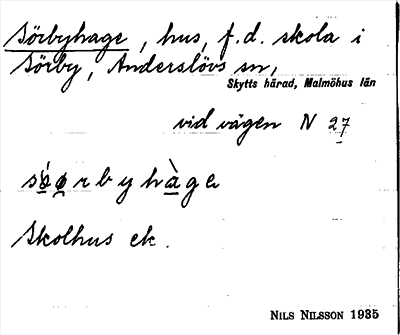 Sörbyhage, hus, f.d. skola i
Sörby, Anderslövs sn,
Skytts härad, Malmöhus län
vid vägen N 27
sørbyhàge
Skolhus ek.
NILS NILSSON 1935